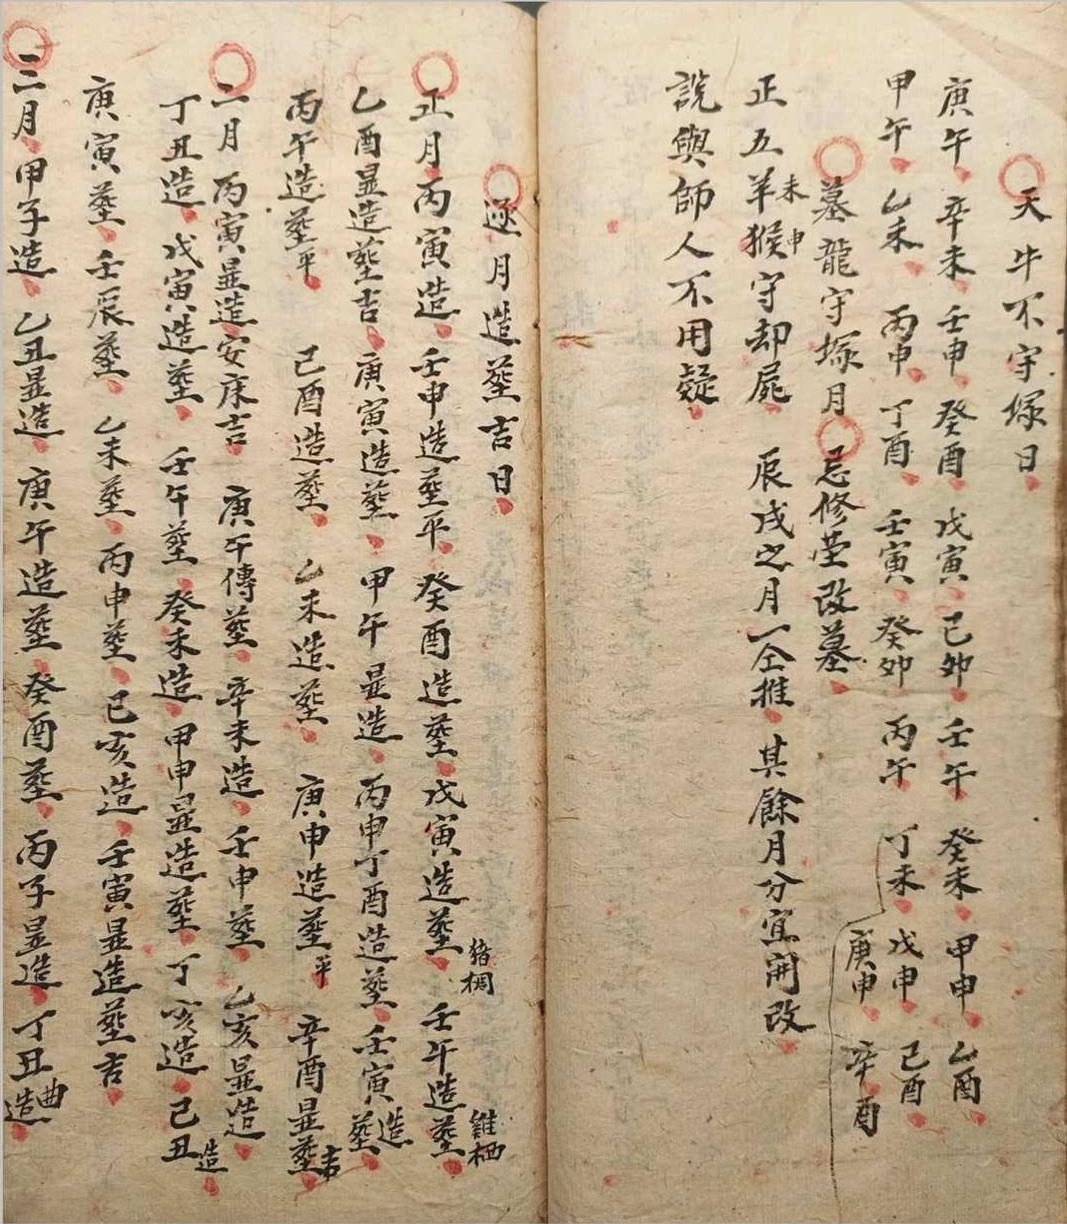 天牛不守塚日
庚午 辛未 壬申 癸酉 戊寅 己卯 壬午 癸未 甲申 乙酉
甲午 乙未 丙申 丁酉 壬寅 癸卯 丙午 丁未 戊申 己酉
庚申 辛酉
墓龍守塚月 忌修塋改墓
正五羊未猴申守却屍 辰戌之月一仝推 其餘月分宜開改
説與師人不用疑
逐月造葬吉日
正月丙寅造 壬申造葬平 癸酉造葬 戊寅造葬猪椆 壬午造葬雞栖
乙酉显造葬吉 庚寅造葬 甲午显造 丙申丁酉造葬 壬寅造葬
丙午造葬平 己酉造葬 乙未造葬 庚申造葬平 辛酉显葬吉
二月丙寅显造安床吉 庚午傳葬 辛未造 壬申葬 乙亥显造
丁丑造 戊寅造葬 壬午葬 癸未造 甲申显造葬 丁亥造 己丑造
庚寅葬 壬辰葬 乙未葬 丙申葬 己亥造 壬寅显造葬吉
三月甲子造 乙丑显造 庚午造葬 癸酉葬 丙子显造 丁丑曲造